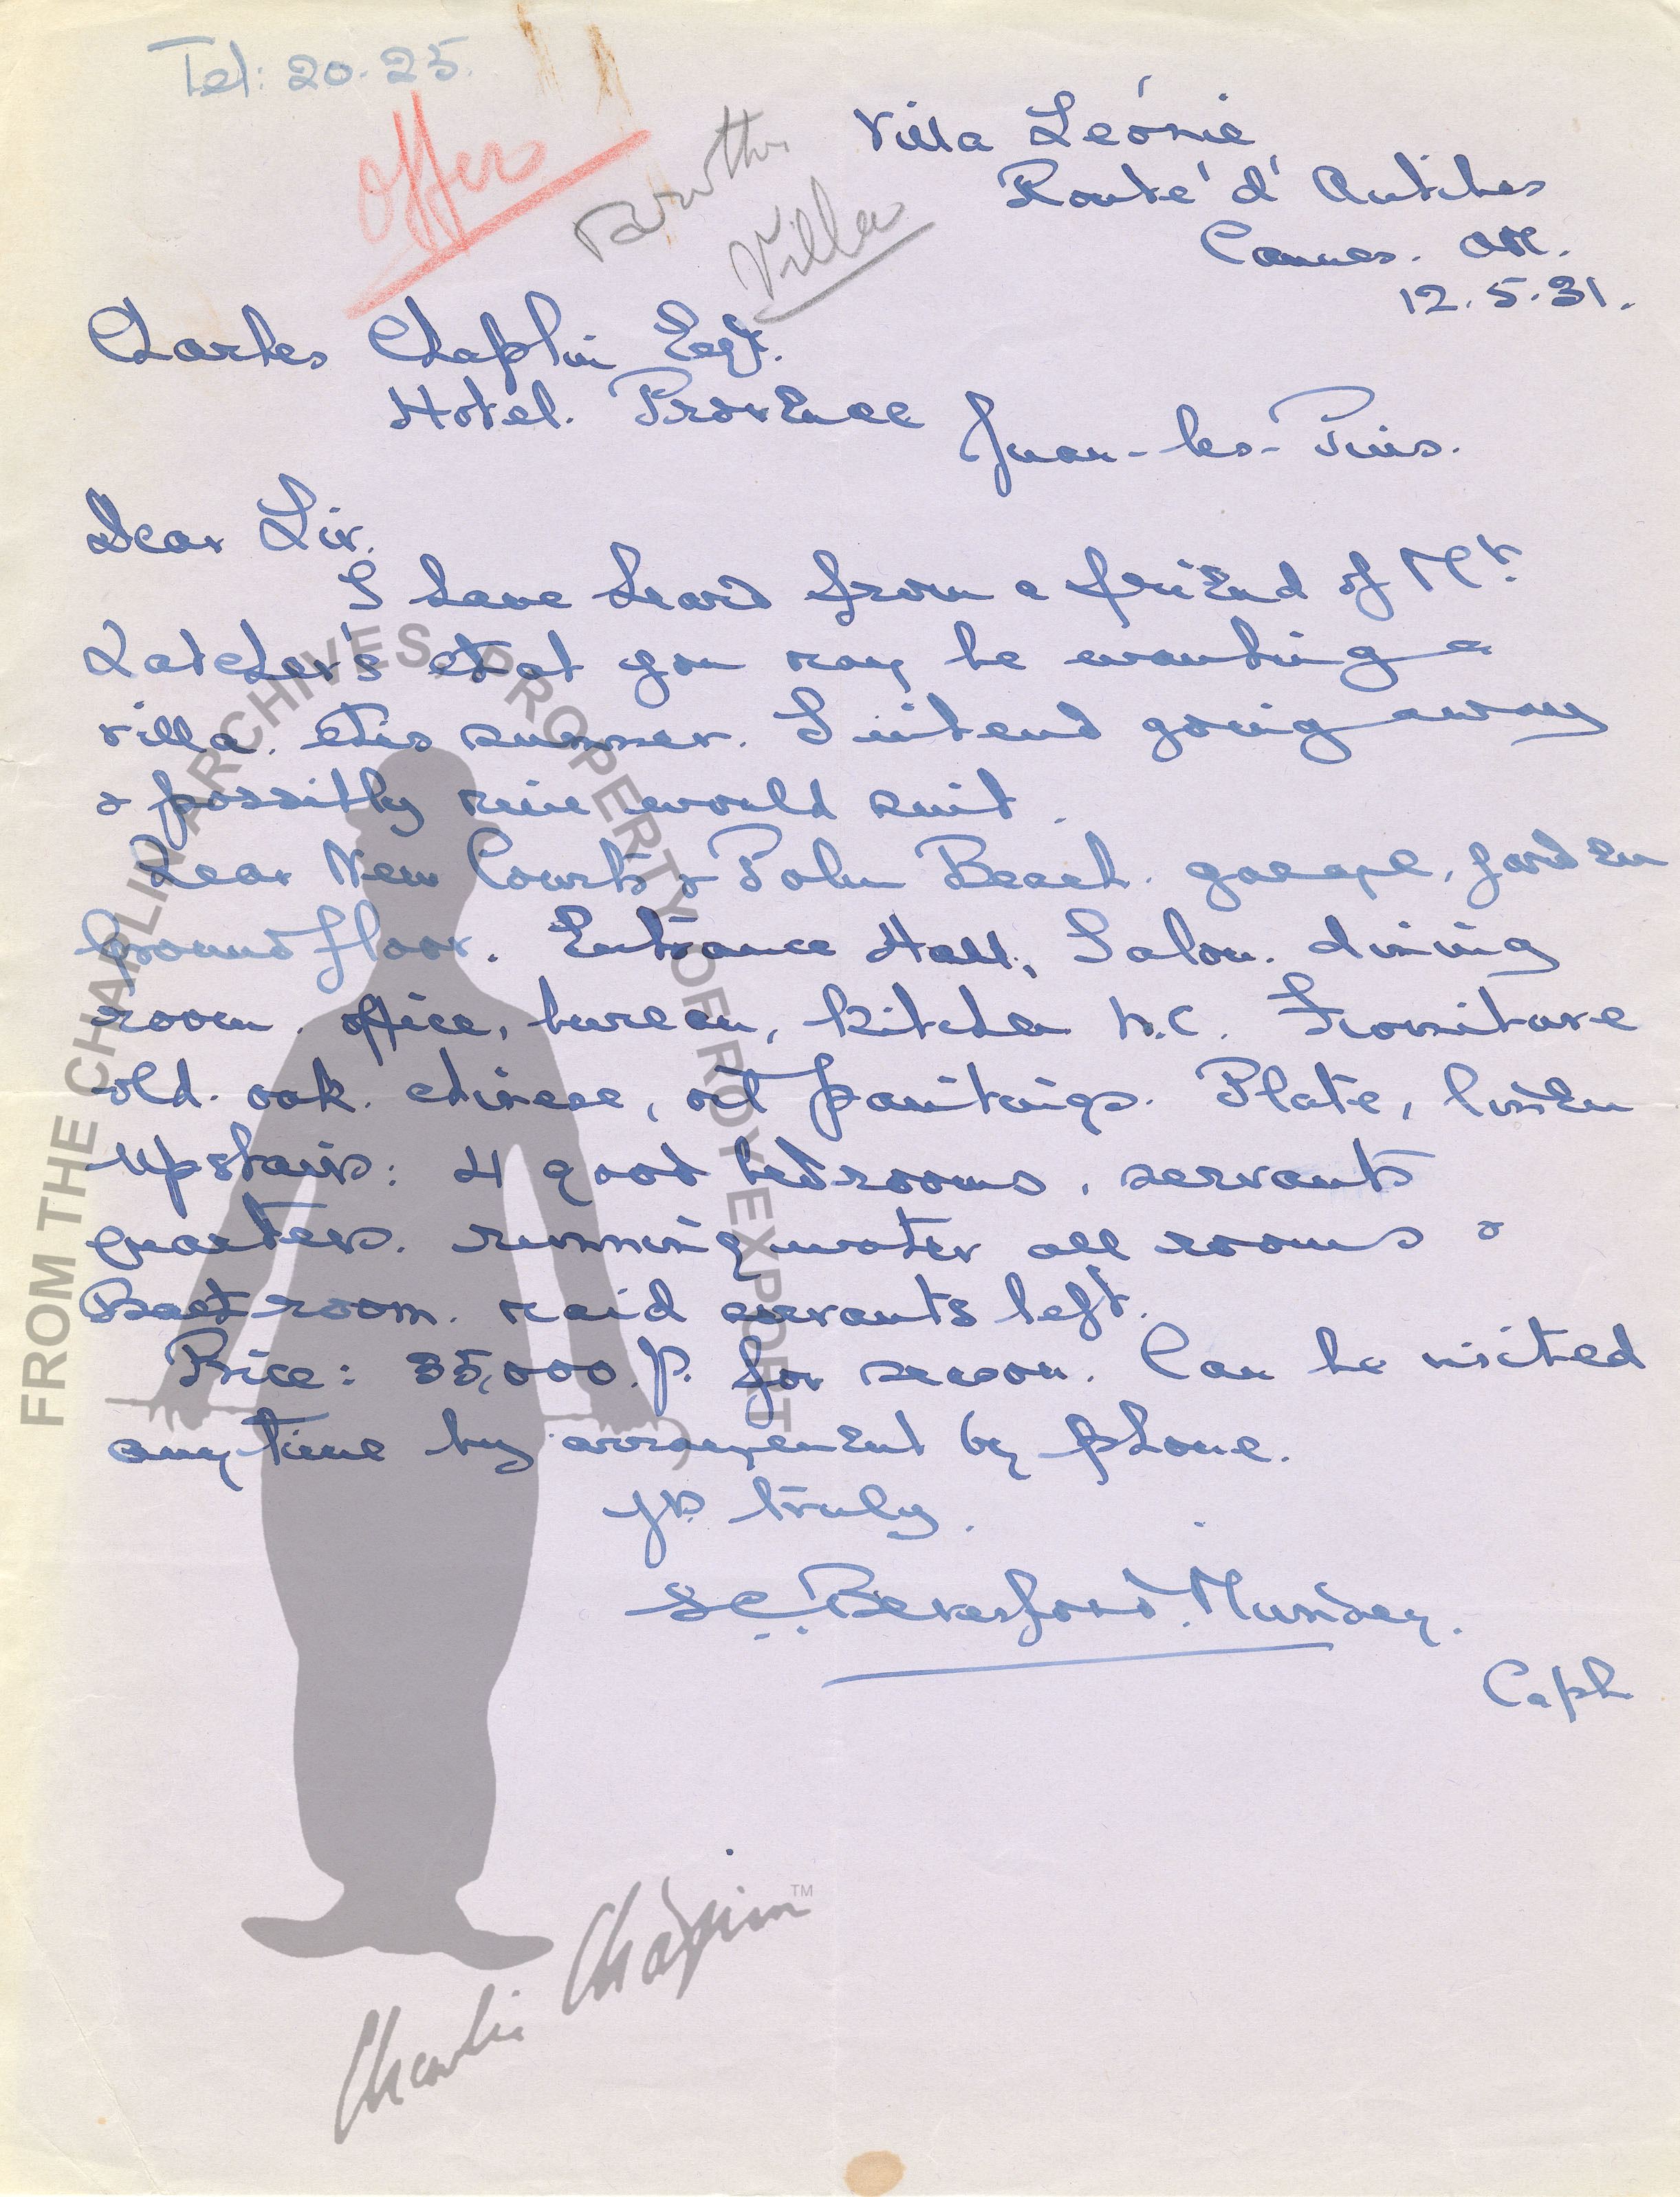 Tel: 20.25.
offers
another
Villa
Villa Léonie
Route d'Antibes
Cannes. AM.
12.5.31.
Charles Chaplin Esqr.
Hotel. Provence
Juan-les-Pins.
Dear Sir.
I have heard from a friend of Mr.
that you may be wanting a
villa. this summer. I intend going away
& possibly mine would suit.
Near New Courts & Palm Beach. garage, garden
Ground floor. Entrance Hall, Salon. dining
room. office, bureau, kitchen W.C. Furniture
old. oak. chinese, oil paintings. Plate, linen
Upstairs: 4 good bedrooms, servants
quarters. running water all rooms &
Bathroom. maid servants left.
Price: 35,000. f. for season. Can be visited
any time by arrangement by phone.
yrs truly.
Beresford. Munsey.
Capt.
FROM THE CHAPLIN ARCHIVES, PROPERTY OF ROY EXPORT
Charlie Chaplin™